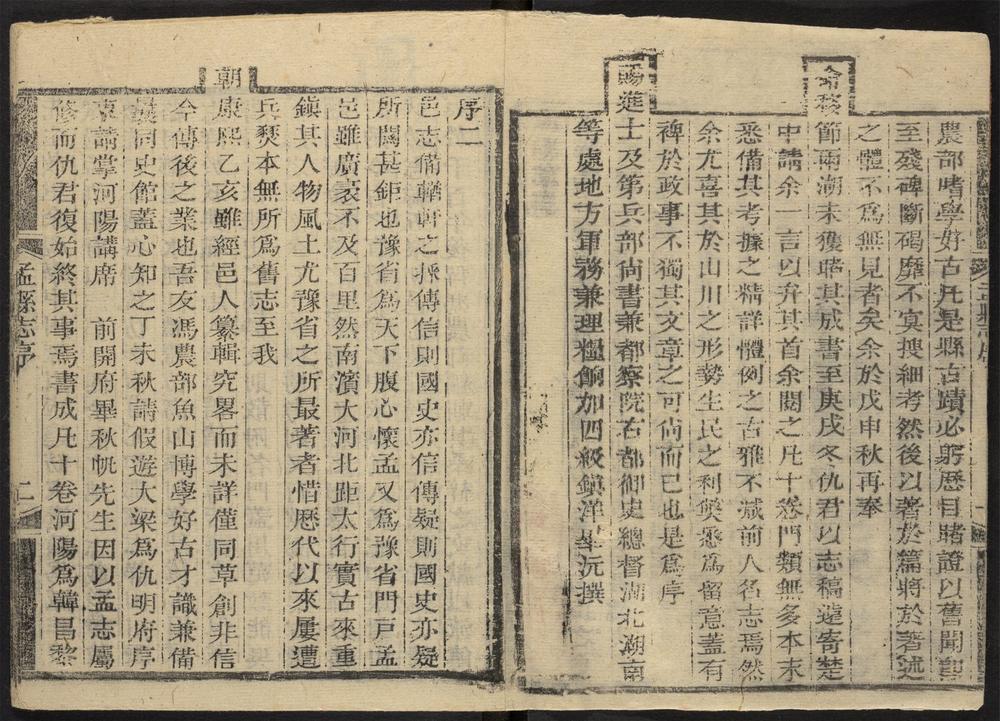 農部嗜學好古凡是縣古蹟必躬歷目睹證以舊聞
至殘碑斷碣靡不冥搜細考然後以著於篇將於著述
之體不爲無見者矣余於戊申秋再奉
命移
節兩湖未獲睹其成書至庚戌冬仇君以志稿遠寄楚
中請余一言以弁其首余閱之凡十卷門類無多本末
悉備其考據之精詳體例之古雅不減前人名志焉然
余尤喜其於山川之形勢生民之利獘悉爲留意蓋有
裨於政事不獨其文章之可尙而已也是爲序
賜進士及第兵部尙書兼都察院右都御史總督湖北湖南
等處地方軍務兼理糧餉加四級鎮洋畢沅撰
序二
邑志備輶軒之採傳信則國史亦信傳疑則國史亦疑
所關甚鉅也豫省爲天下腹心懷孟又爲豫省門戸孟
邑雖廣袤不及百里然南濱大河北距太行實古來重
鎭其人物風土尤豫省之所最著者惜厯代以來屢遭
兵燹本無所爲舊志至我
朝康熙乙亥雖經邑人纂輯究畧而未詳僅同草創非信
今傳後之業也吾友馮農部魚山博學好古才識兼備
曩同史館蓋心知之丁未秋請假遊大梁爲仇明府序
東請掌河陽講席 前開府畢秋帆先生因以孟志屬
修而仇君復始終其事焉書成凡十卷河陽爲韓昌黎
孟縣志序
二